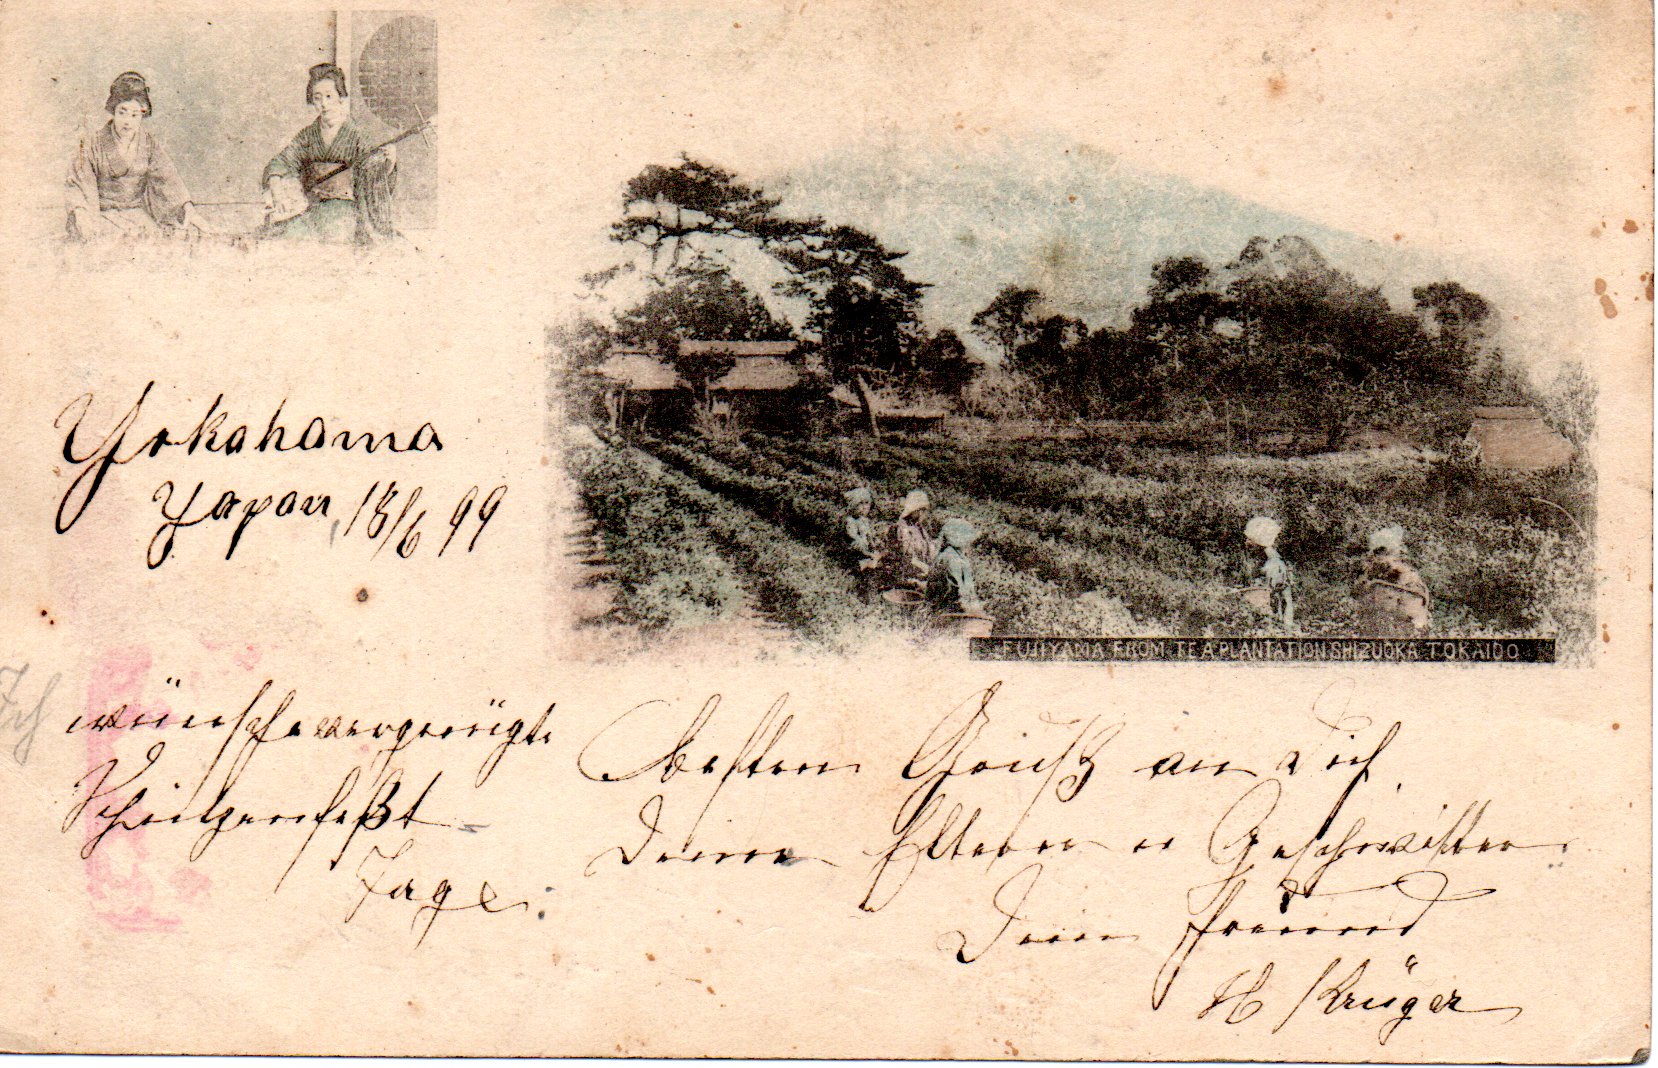 Yokohama
Yapan, 18/6 99
FUJIYAMA FROM TEA PLANTATION SHIZUOKA TOKAIDO
Ich
wünsche vergnügte
Schützenfeßt
Tage.
Besten Gruß an Dich
Deine Eltern u Geschwister
Dein Freund
H Krüger